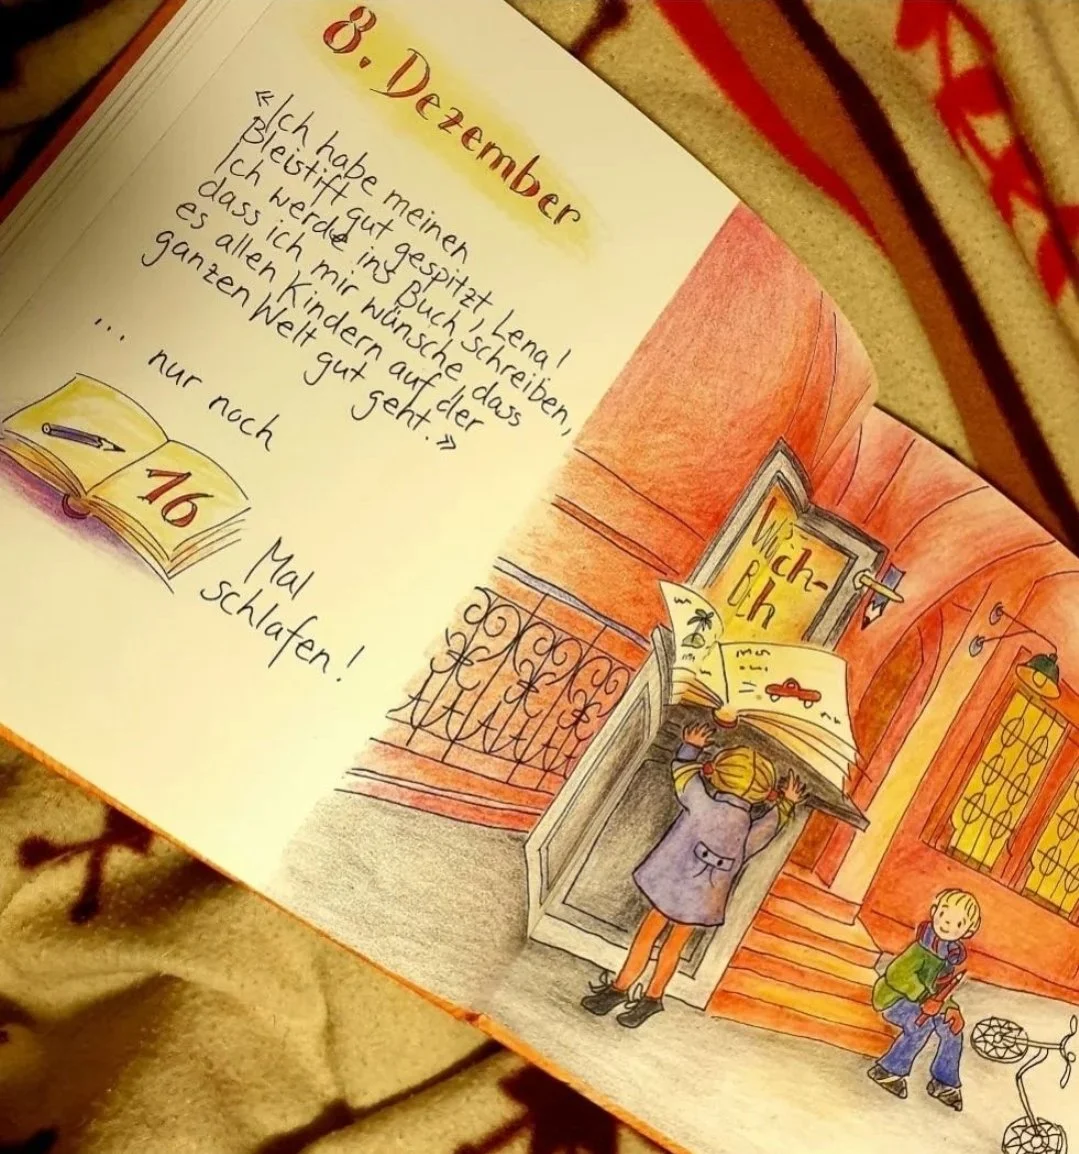 8. Dezember
«Ich habe meinen
Bleistift gut gespitzt, Lena!
Ich werde ins Buch schreiben,
dass ich mir wünsche, dass
es allen Kindern auf der
ganzen Welt gut geht.»
... nur noch
16
Mal
schlafen!